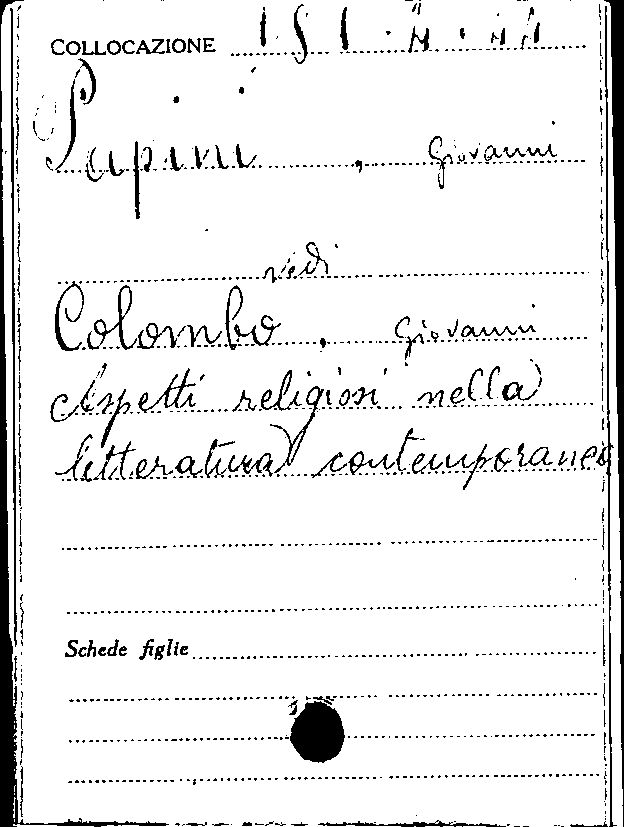 COLLOCAZIONE
Papini, Giovanni
vedi
Colombo, Giovanni
Aspetti religiosi nella
letteratura contemporanea
Schede figlie